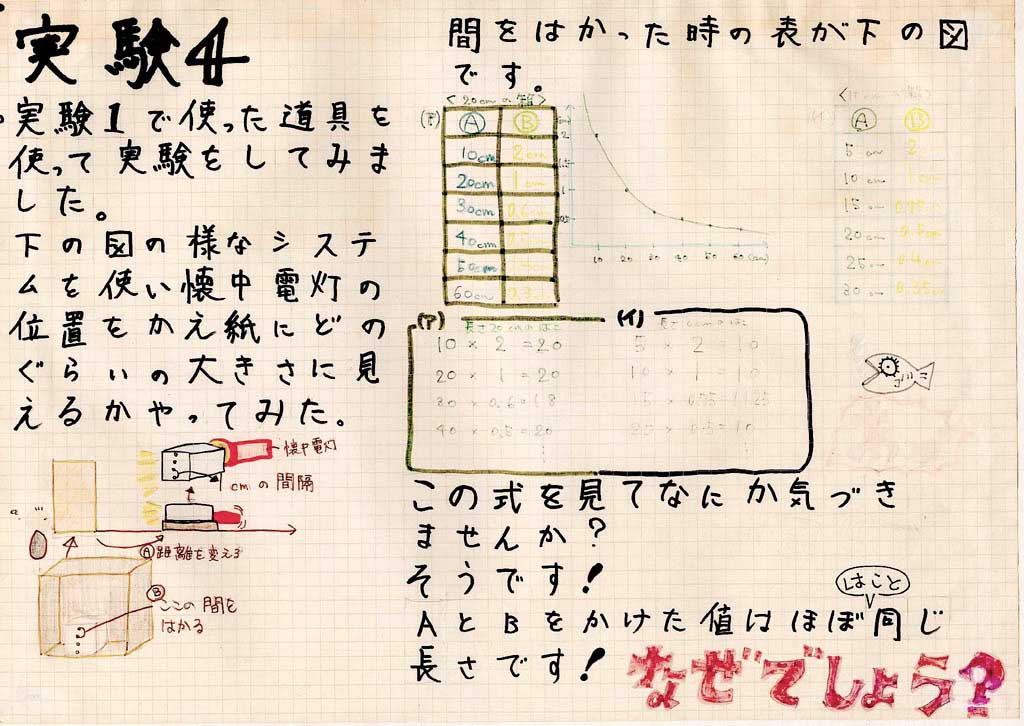 実験4
実験1で使った道具を
使って実験をしてみま
した。
下の図の様なシステ
ムを使い懐中電灯の
位置をかえ紙にどの
ぐらいの大きさに見
えるかやってみた。
懐中電灯
1cmの間隔
Ⓐ距離を変える
Ⓑ
ここの間を
はかる
間をはかった時の表が下の図
です。
<20cmの箱>
(ア) Ⓐ Ⓑ
10cm 2cm
20cm 1cm
30cm 0.6cm
40cm 0.5
50cm
60cm 0.3
10 20 30 40 50 60 (cm)
Ⓐ Ⓑ
5cm 2
10cm 1cm
15cm 0.75cm
20cm 0.5cm
25cm 0.4cm
30cm 0.35cm
(ア) 長さ20cmのはこ
10 × 2 = 20
20 × 1 = 20
30 × 0.6 = 18
40 × 0.5 = 20
(イ) 長さ10cmのはこ
5 × 2 = 10
10 × 1 = 10
15 × 0.75 = 11.25
20 × 0.5 = 10
この式を見てなにか気づき
ませんか?
そうです!
はこと
AとBをかけた値はほぼ同じ
長さです!
なぜでしょう?